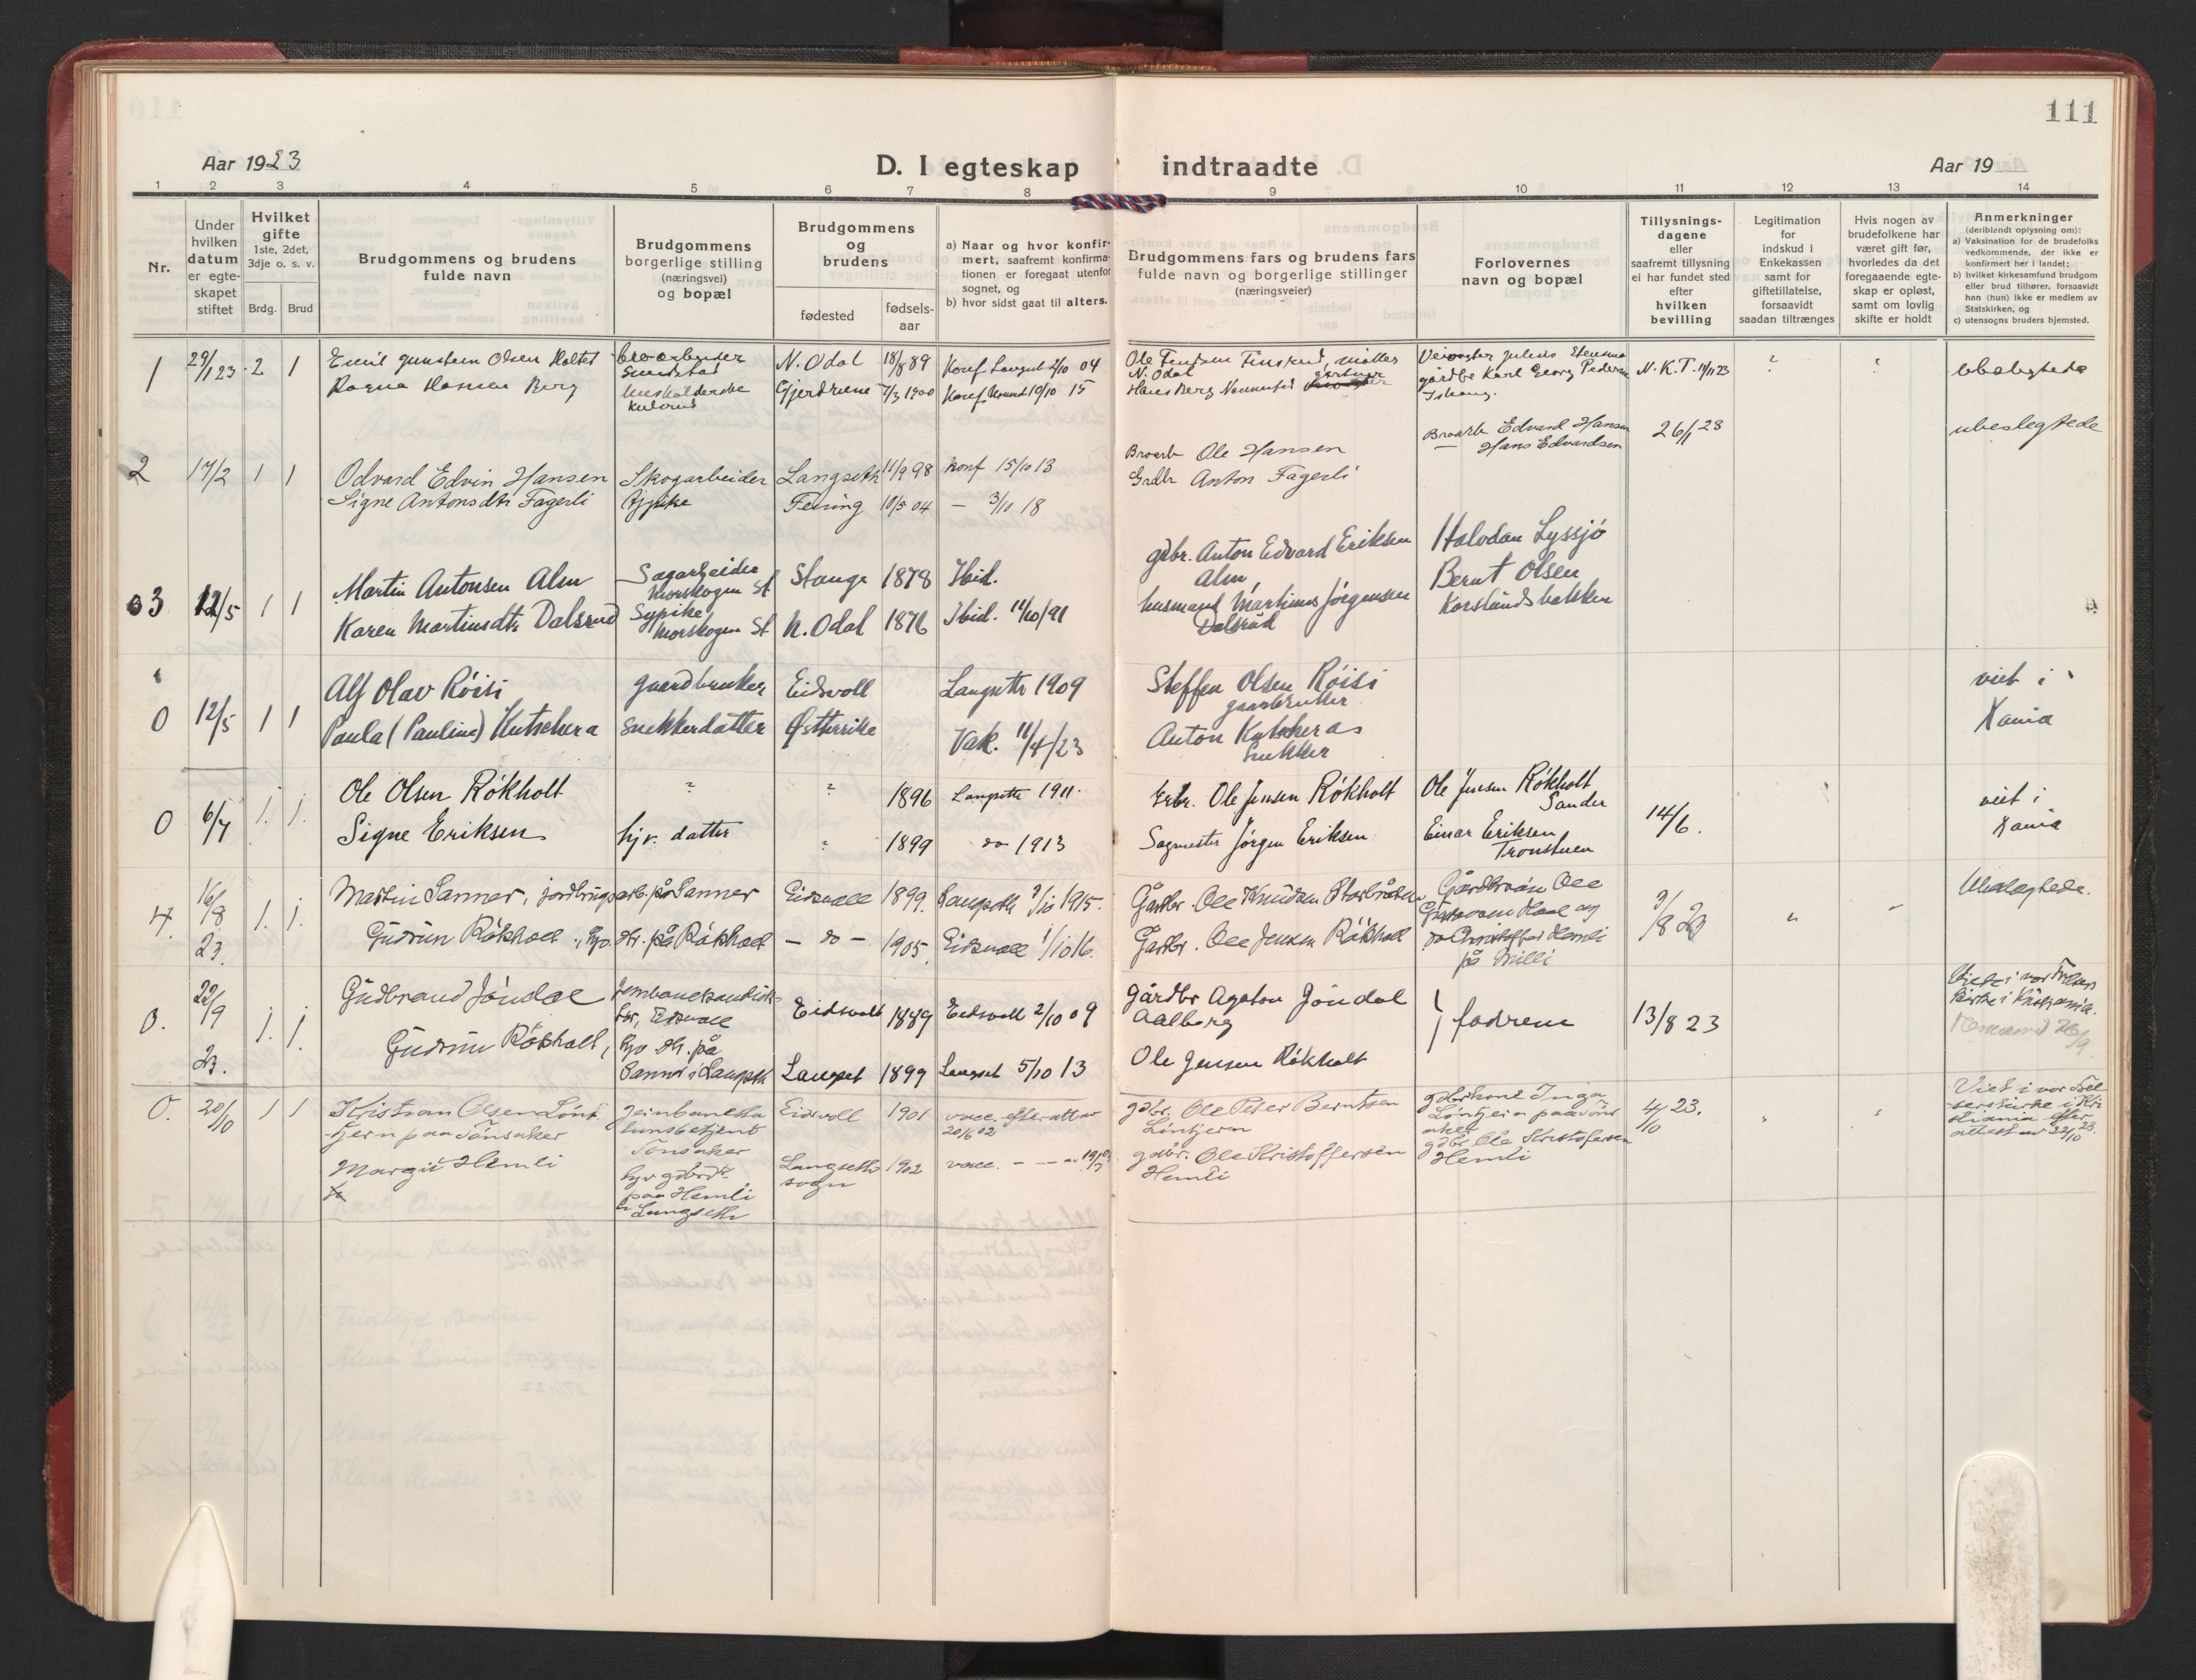 111
Aar 1923
D. I egteskap indtraadte
Aar 19
1 2 3 4 5 6 7 8 9 10 11 12 13 14
Nr.
Under
hvilken
datum
er egte-
skapet
stiftet
Hvilket
gifte
1ste, 2det,
3dje o. s. v.
Brdg. Brud
Brudgommens og brudens
fulde navn
Brudgommens
borgerlige stilling
(næringsvei)
og bopæl
Brudgommens
og
brudens
fødested
fødsels-
aar
a) Naar og hvor konfir-
mert, saafremt konfirma-
tionen er foregaat utenfor
sognet, og
b) hvor sidst gaat til alters.
Brudgommens fars og brudens fars
fulde navn og borgerlige stillinger
(næringsveier)
Forlovernes
navn og bopæl
Tillysnings-
dagene
eller
saafremt tillysning
ei har fundet sted
efter
hvilken
bevilling
Legitimation
for
indskud i
Enkekassen
samt for
giftetillatelse,
forsaavidt
saadan tiltrænges
Hvis nogen av
brudefolkene har
været gift før,
hvorledes da det
foregaaende egte-
skap er opløst,
samt om lovlig
skifte er holdt
Anmerkninger
(deriblandt oplysning om):
a) Vaksination for de brudefolks
vedkommende, der ikke er
konfirmert her i landet;
b) hvilket kirkesamfund brudgom
eller brud tilhører, forsaavidt
han (hun) ikke er medlem av
Statskirken, og
c) utensogns bruders hjemsted.
1 29/1 23 2 1
Emil Gunstein Olsen Holtet
N. Odal 18/8 89 Konf 2/10 04
N. Odal
gårdbr Karl Georg Pedersen
N. K. T. 11/1 23
ubeslegtede
Ragna Hansen Berg
Gjerdrum 7/3 1900 Konf. 10/10 15
Hans Berg
2 17/2 1 1
Odvard Edvin Hansen
Skogarbeider
Langseth 11/9 98 konf 15/10 13
Broarb Ole Hansen
Broarb Edvard Hansen
— Hans Edvardsen
26/1 23
ubeslegtede
Signe Antonsdtr Fagerli
Feiring 10/5 04 — 3/10 18
Grdbr Anton Fagerli
3 12/5 1 1
Martin Antonsen Alm
Sagarbeider
Morskogen St
Stange 1878 Ibid.
gdbr. Anton Edvard Eriksen
Alm
Halvdan Lyssjø
Bernt Olsen
Korslundsbakken
Karen Martinsdtr Dalsrud
Sypike
Morskogen St
N. Odal 1876 Ibid. 11/10/91
husmand Martinus Jørgensen
Dalsrud
0 12/5 1 1
Alf Olav Røisi
gaardbruker
Eidsvoll
Langseth 1909
Steffen Olsen Røisi
gaardbruker
viet i
Kania
Paula (Pauline) Kutschera
snekkerdatter
Østerrike
Vak. 11/4/23
Anton Kutscheras
Snekker
0 6/7 1. 1.
Ole Olsen Røkholt
1896 Langseth 1911.
Ole Jensen Røkholt
Ole Jensen Røkholt
Sander
14/6.
viet i
Kania
Signe Eriksen
hjv. datter
1899 do 1913
Sagmester Jørgen Eriksen
Einar Eriksen
Tronstuen
4. 16/8 23. 1. 1.
Martin Sanner, jordbrugsarb. på Sanner
Eidsvoll 1899. Langseth 3/10 1915.
Gårdbr. Ole Knudsen
9/8 23
Ubeslegtede.
Gudrun Røkholt, hjv. dtr. på Røkholt
— do — 1905. Eidsvoll 1/10 16.
Gårdbr. Ole Jensen Røkholt
do Christoffer Hemli
0. 22/9 23. 1. 1.
Gudbrand Jøndal
Eidsvoll
Eidsvoll 1889 Eidsvoll 2/10 09
Gårdbr Agaton Jøndal
Aalborg
fadrene
13/8 23
Viet i vor Frelsers
kirke i Kristiania.
Gudrun Røkholt,
hjv dtr. på
Sanner i Langseth
Langset 1899 Langset 5/10 13
Ole Jensen Røkholt
0. 20/10 1 1
Kristian Olsen Lønt-
tjern paa Tønsaker
Tønsaker
Eidsvoll 1901 vacc. efter att av
20/6 02
gdbr. Ole Peter Berntsen
Løntjern
gdbrkone Inga
Løntjern paa Tøns
aker
gdbr Ole Kristofersen
Hemli
4/10 23.
Viet i vor Frel-
sers kirke i Kri-
stiania efter
attest av 22/10 23.
Margit Hemli
hjv gdbrdtr
paa Hemli
Langseth
Langseth
sogn
1902 vacc. — — —
gdbr. Ole Kristoffersen
Hemli